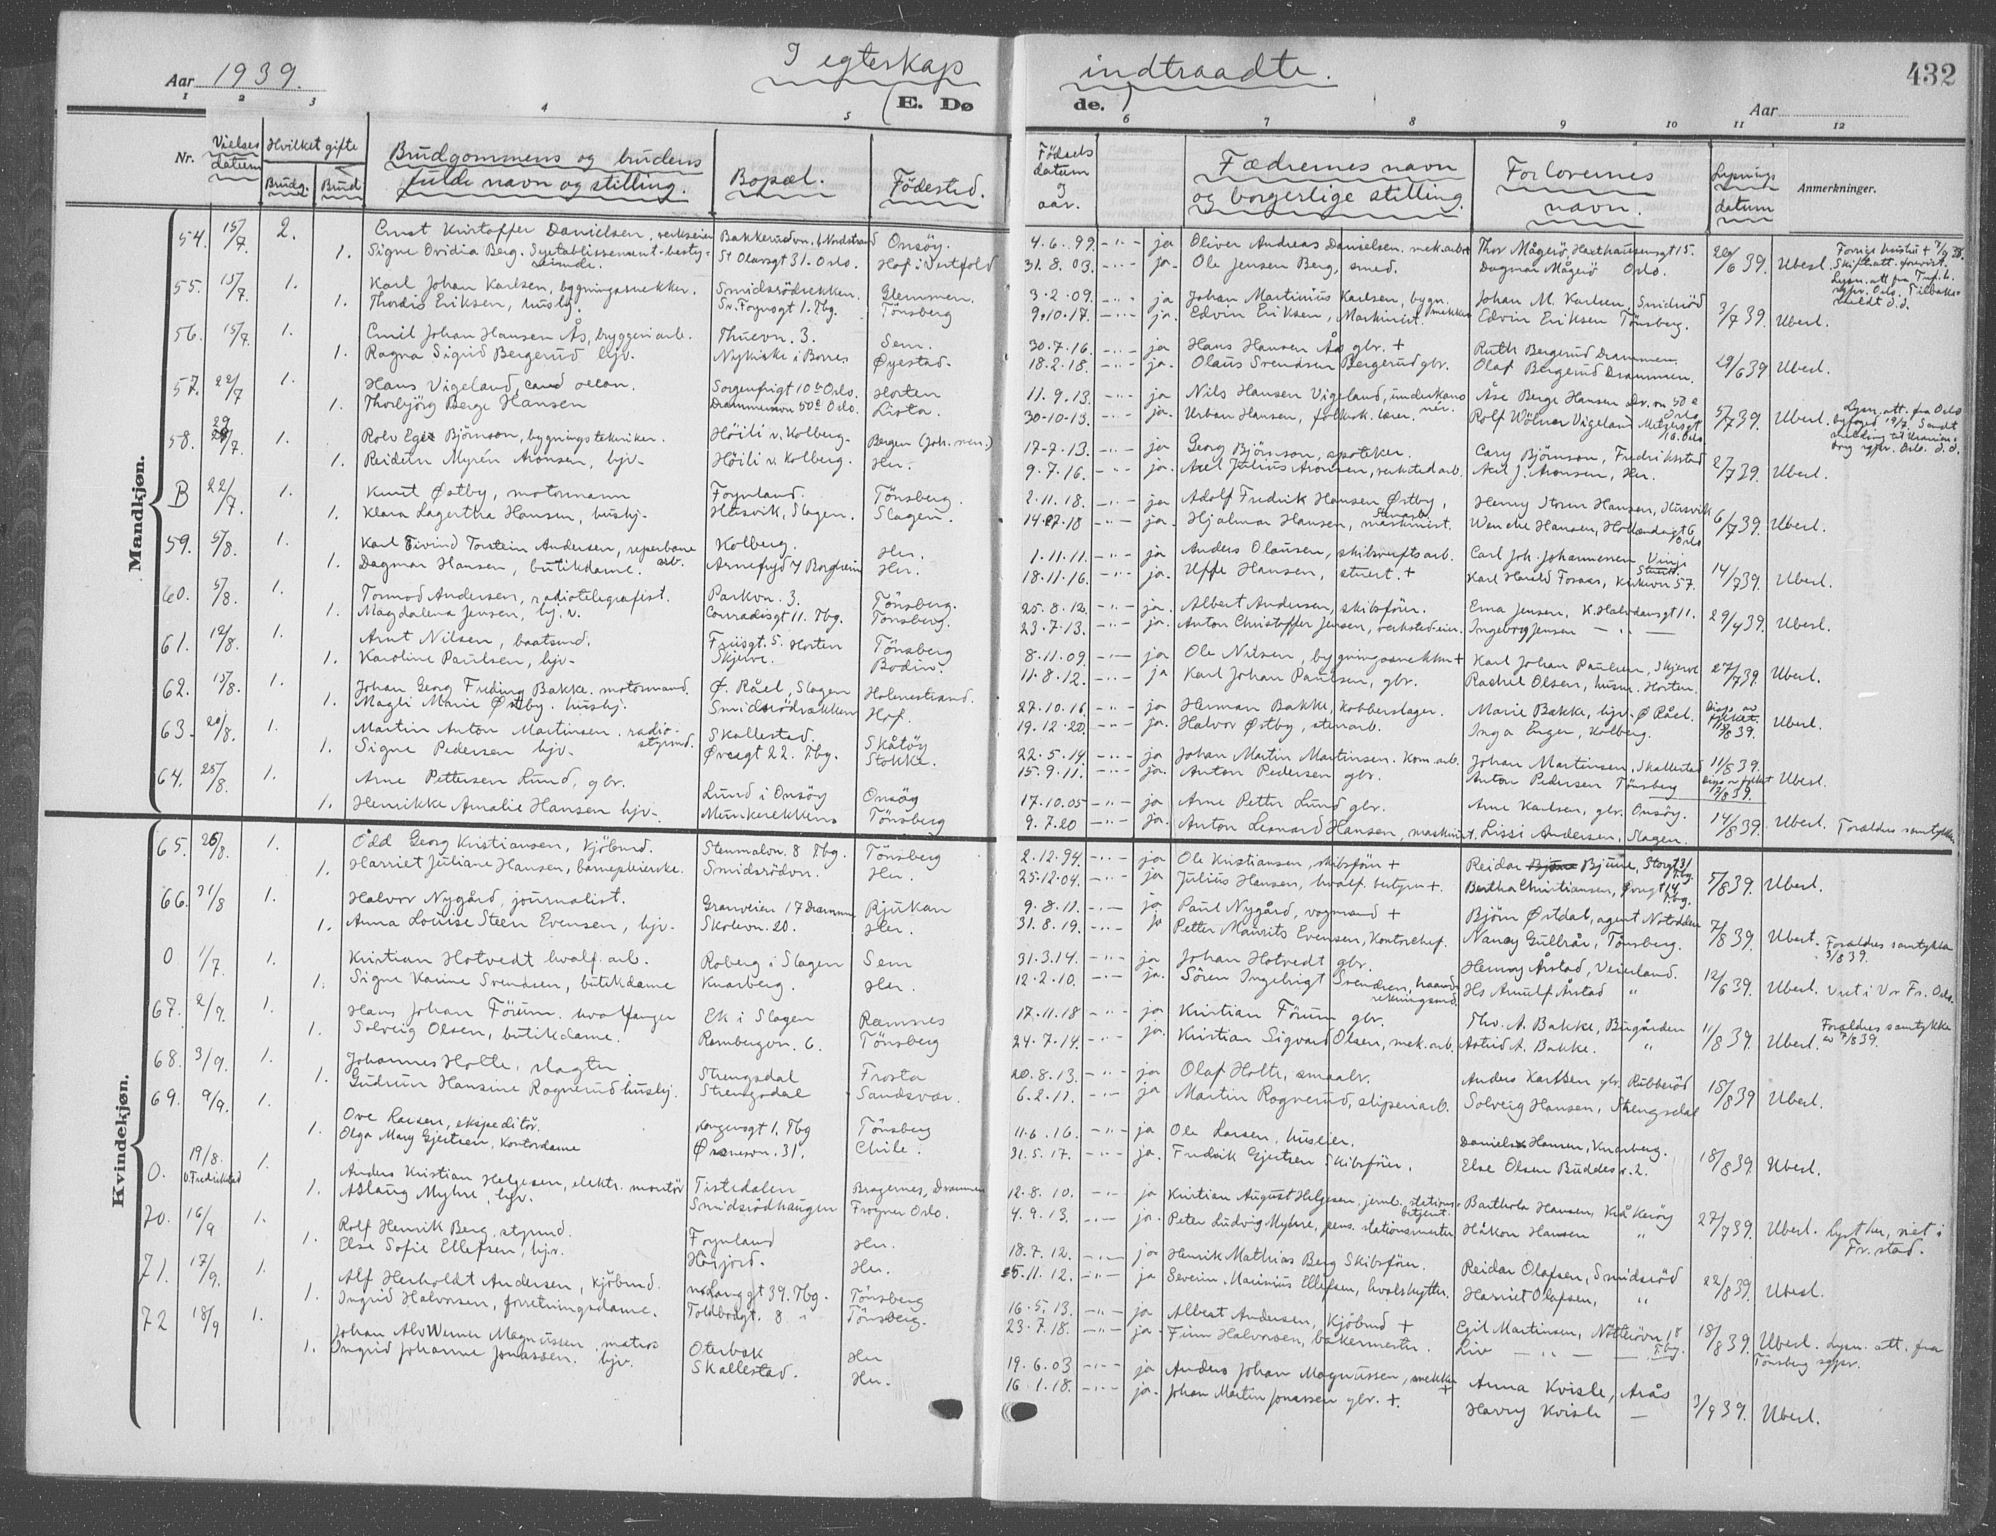 Aar 1939.
I egteskap indtraadte.
(E. Døde.)
Aar
432
1 2 3 4 5 6 7 8 9 10 11 12
Nr.
Vielses datum
Hvilket gifte
Brudg. Brud
Brudgommens og brudens fulde navn og stilling.
Bopæl.
Födested.
Födsels datum og aar.
Fædrenes navn og borgerlige stilling.
Forlovernes navn.
Lysnings datum
Anmerkninger.
Mandkjøn.
Kvindekjøn.
54. 15/7 2. Ernst Kristoffer Danielsen, verkseier Bakkerudvn. 6 Nordstrand Onsöy. 4.6.99 -"- ja Oliver Andreas Danielsen. mek.arb. Thor Mågerö, Haxthausensgt 15.
1. Signe Ovidia Berg. Syetablissement-bestyrerinde. St Olavsgt 31. Oslo. Hof i Vestfold 31.8.03. -"- ja. Ole Jensen Berg, smed. Dagmar Mågerö Oslo. 20/6 39. Uberl.
55. 15/7 1. Karl Johan Karlsen, bygningssnekker. Smidsrödrekken. Glemmen. 3.2.09. -"- ja Johan Martinius Karlsen, bygn. snekker Johan M. Karlsen, Smidsröd
1. Thordis Eriksen, husbj. Sv. Foynsgt 1. Tbg. Tönsberg 9.10.17. -"- ja. Edvin Eriksen, Maskinist. Edvin Eriksen Tönsberg. 3/7 39. Uberl.
56. 15/7 1. Emil Johan Hansen Ås, byggeriarb. Thuevn. 3. Sem. 30.7.16. -"- ja Hans Hansen Ås gbr. + Ruth Bergerud Drammen.
1. Ragna Sigrid Bergerud hjv. Nykirke i Borre Øyestad. 18.2.18. -"- ja. Olaus Svendsen Bergerud gbr. Olaf Bergerud Drammen. 29/6 39 Uberl.
57. 22/7 1. Hans Vigeland, cand oecon. Sorgenfrigt 10b Oslo. Horten 11.9.13. -"- ja Nils Hansen Vigeland, underkanoner. Åse Berge Hansen Dr.vn 50e Oslo
1. Thorbjörg Berge Hansen Drammensvn 50e Oslo. Lista. 30.10.13. -"- ja. Urban Hansen, folksk. lærer. Rolf Wölner Vigeland 5/7 39. Uberl.
58. 29/7 1. Rolv Björnson, bygningstekniker. Höili v. Kolberg. Bergen 17.7.13. -"- ja Georg Björnson, apoteker. Cary Björnson, Fredrikstad
1. Reidun Myrén Aronsen, hjv. Höili v. Kolberg. Her. 9.7.16. -"- ja. Axel Julius Aronsen, verkstedarb. Axel J. Aronsen, Her. 2/7 39. Uberl.
B 22/7 1. Knut Østby, motormann Foynland. Tönsberg. 2.11.18. -"- ja Adolf Fredrik Hansen Østby, stenarb. Henry Storm Hansen, Husvik
1. Klara Lagertha Hansen, husbj. Husvik, Slagen. Slagen. -"- ja. Hjalmar Hansen, maskinist. Wenche Hansen, Oslo 6/7 39. Uberl.
59. 5/8. 1. Karl Eivind Torstein Andersen, reperbanearb. Kolberg. Her. 1.11.11. -"- ja Anders Olausen, skibsverftsarb. Carl Joh. Johannessen
1. Dagmar Hansen, butikdame. Her. 18.11.16. -"- ja. Uffe Hansen, stuert. + Karl Harald Foraas, Kirkevn 57. 14/7 39. Uberl.
60. 5/8. 1. Tormod Andersen, radiotelegrafist. Parkvn. 3. Tönsberg. 25.8.12. -"- ja Albert Andersen, skibsförer. Erna Jensen, K. Halvdansgt 11.
1. Magdalena Jensen, hj.v. Conradisgt 11. Tbg. Tönsberg. 23.7.13. -"- ja. Anton Christoffer Jensen, verkstedeier. Ingeborg Jensen — " — 29/4 39. Uberl.
61. 12/8. 1. Arnt Nilsen, baatsmd. Friisgt. 5. Horten Tönsberg 8.11.09. -"- ja Ole Nilsen, bygningssnekker + Karl Johan Paulsen, Skjerve
1. Karoline Paulsen, hjv. Skjerve. Bodin. 11.8.12. -"- ja Karl Johan Paulsen, gbr. Rachel Olsen, husm. Horten. 27/7 39. Uberl.
62. 15/8. 1. Johan Georg Freding Bakke. motormand. Ø. Råel, Slagen Holmestrand. 27.10.16 -"- ja Herman Bakke, kobberslager. Marie Bakke, hjv. Ø Råel.
1. Magli Marie Østby. husbj. Smidsrödrækken Hof. 19.12.20. -"- ja. Halvor Østby, stenarb. Inga Enger, Kolberg. 39. Uberl.
63. 20/8. 1. Martin Anton Martinsen. radio-styrmd. Skallestad. Skåtöy 22.5.14. -"- ja Johan Martin Martinsen. kom.arb. Johan Martinsen, Skallestad 11/8 39.
1. Signe Pedersen hjv. Øvregt 22. Tbg. Stokke. 15.9.11. -"- ja. Anton Pedersen gbr. Anton Pedersen Tönsberg Uberl.
64. 25/8. 1. Arne Pettersen Lund, gbr. Lund i Onsöy Onsöy 17.10.05 -"- ja Arne Petter Lund gbr. Arne Karlsen, gbr. Onsöy.
1. Henrikke Amalie Hansen hjv. Munkerekken Tönsberg 9.7.20 -"- ja. Anton Leonard Hansen, maskinist. Lissi Andersen, Slagen. 14/8 39. Uberl. Forældres samtykke
65. 26/8. 1. Odd Georg Kristiansen, Kjöbmd. Stenmalvn. 8 Tbg. Tönsberg 2.12.94. -"- ja Ole Kristiansen, skibsförer + Reidar Bjune, Storgt 31 Tbg.
1. Harriet Juliane Hansen, barnepleierske. Smidsrödvn. Her. 25.12.04. -"- ja Julius Hansen, hvalf. bestyrer +. Bertha Christiansen, Øvregt 14 Tbg. 5/8 39. Uberl.
66. 31/8 1. Halvor Nygård, journalist. Granveien 17 Drammen Rjukan 9.8.11. -"- ja Paul Nygård, vognmand + Björn Østdal, agent Notodden
1. Anna Louise Steen Evensen, hjv. Skolevn. 20. Her. 31.8.19. -"- ja Petter Maurits Evensen, Kontorchef. Nancy Gullrår, Tönsberg. 7/8 39. Uberl. Forældres samtykke 3/8 39.
O. 1/7. 1. Kristian Hotvedt hvalf. arb. Roberg i Slagen Sem 31.3.14. -"- ja Johan Hotvedt gbr. Henny Årstad, Veierland.
1. Signe Karine Svendsen, butikdame Knarberg. Her. 12.2.10. -"- ja. Sören Ingebrigt Svendsen, haandverkningsmd. Hs Arnulf Årstad " 12/6 39. Uberl. Viet i Vor Fr. Oslo.
67. 2/9. 1. Hans Johan Förum. hvalfanger Ek i Slagen Ramnes 17.11.18 -"- ja Kristian Förum gbr. Thv. A. Bakke, Bugården
1. Solveig Olsen, butikdame. Rambergvn. 6. Tönsberg 24.7.14. -"- ja. Kristian Sigvard Olsen, mek.arb. Astrid A. Bakke. " 11/8 39. Uberl. Forældres samtykke av 7/8 39.
68. 3/9. 1. Johannes Holte, slagter Strengsdal Frosta 20.8.13. -"- ja Olaf Holte, smaabr. Anders Karlsen gbr. Rubberöd
1. Gudrun Hansine Rognerud husbj. Strengsdal Sandsvær. 6.2.11. -"- ja Martin Rognerud, sliperiarb. Solveig Hansen, Strengsdal 18/8 39 Uberl.
69. 9/9. 1. Ove Larsen, ekspeditör. Kongensgt 1. Tbg Tönsberg 11.6.16. -"- ja Ole Larsen, huseier. Daniel Hansen, Knarberg.
1. Olga Mary Gjertsen, kontordame Ørsnesvn. 31. Chile. 21.5.17. -"- ja. Fredrik Gjertsen Skibsförer. Else Olsen Buddes v. 2. 18/8 39. Uberl.
O. 19/8. v. Fredrikstad 1. Anders Kristian Helgesen, elektr. montör Tistedalen Bragernes, Drammen 12.8.10. -"- ja Kristian August Helgesen, jernb. stationsbetjent. Barthola Hansen, Kråkeröy
1. Aslaug Myhre, hjv. Smidsrödhaugen Frogner Oslo. 4.9.13. -"- ja. Peter Ludvig Myhre, pens. stationsmester Håkon Hansen " 27/7 39. Uberl. Lyst her, viet i Fr.stad.
70. 16/9 1. Rolf Henrik Berg, styrmd. Foynland Her. 18.7.12. -"- ja Henrik Mathias Berg Skibsförer. Reidar Olafsen, Smidsröd
1. Else Sofie Ellefsen, hjv. Hårjord. Her. 5.11.12. -"- ja Severin Marinius Ellefsen, hvalskytter. Harriet Olafsen, " 22/8 39. Uberl.
71. 17/9. 1. Alf Herholdt Andersen, kjöbmd. ndlanggt 39. Tbg. Tönsberg 16.5.13. -"- ja Albert Andersen, Kjöbmd + Egil Martinsen, Nötteröyvn. 18 Tbg.
1. Ingrid Halvorsen, forretningsdame. Toldbodgt. 8 " Tönsberg. 23.7.18. -"- ja. Finn Halvorsen, bakermester. Liv — " — 18/8 39. Uberl. Lysn. att. fra Tönsberg sgpr.
72 18/9 1. Johan Alv Werner Magnussen. matros Oterbæk Her 19.6.03 -"- ja Anders Johan Magnussen, snekker + Anna Kvisle, Arås
1. Ingrid Johanne Jonassen. hjv. Skallestad. Her. 16.1.18. -"- ja. Johan Martin Jonassen gbr. +. Harry Kvisle — 3/9 39. Uberl.